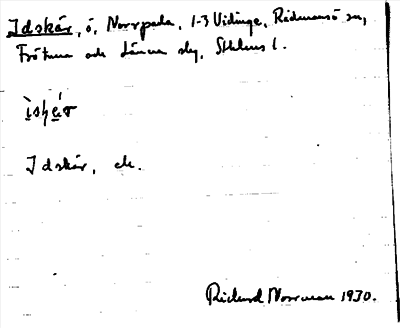 Idskär, ö, Norrpada, 1-3 Vidinge, Rådmansö sn,
Frötuna och Länna slg, Sthlms l.
ìshę́r
Idskär, ek.
Richard Norrman 1930.